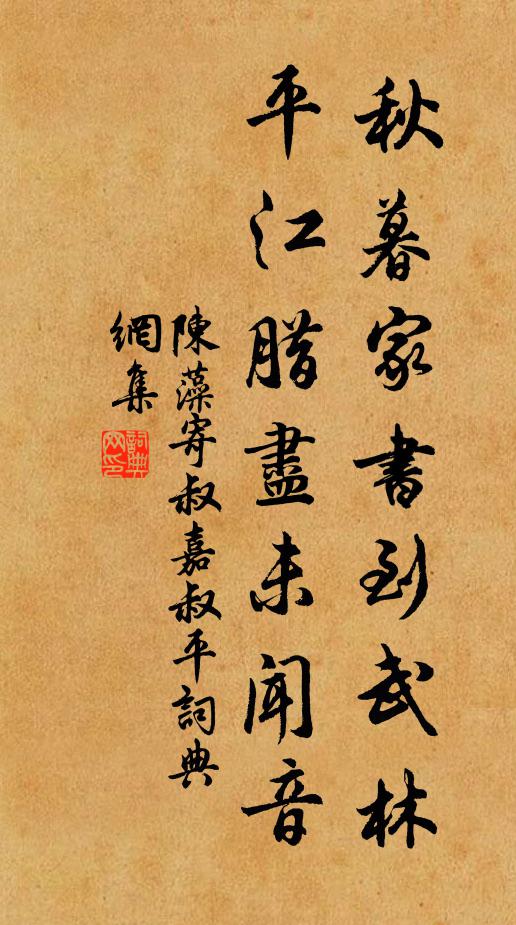 秋暮家書到武林
平江腊盡未聞音
陳藻寄叔嘉叔平詞典
網集
詞典網印